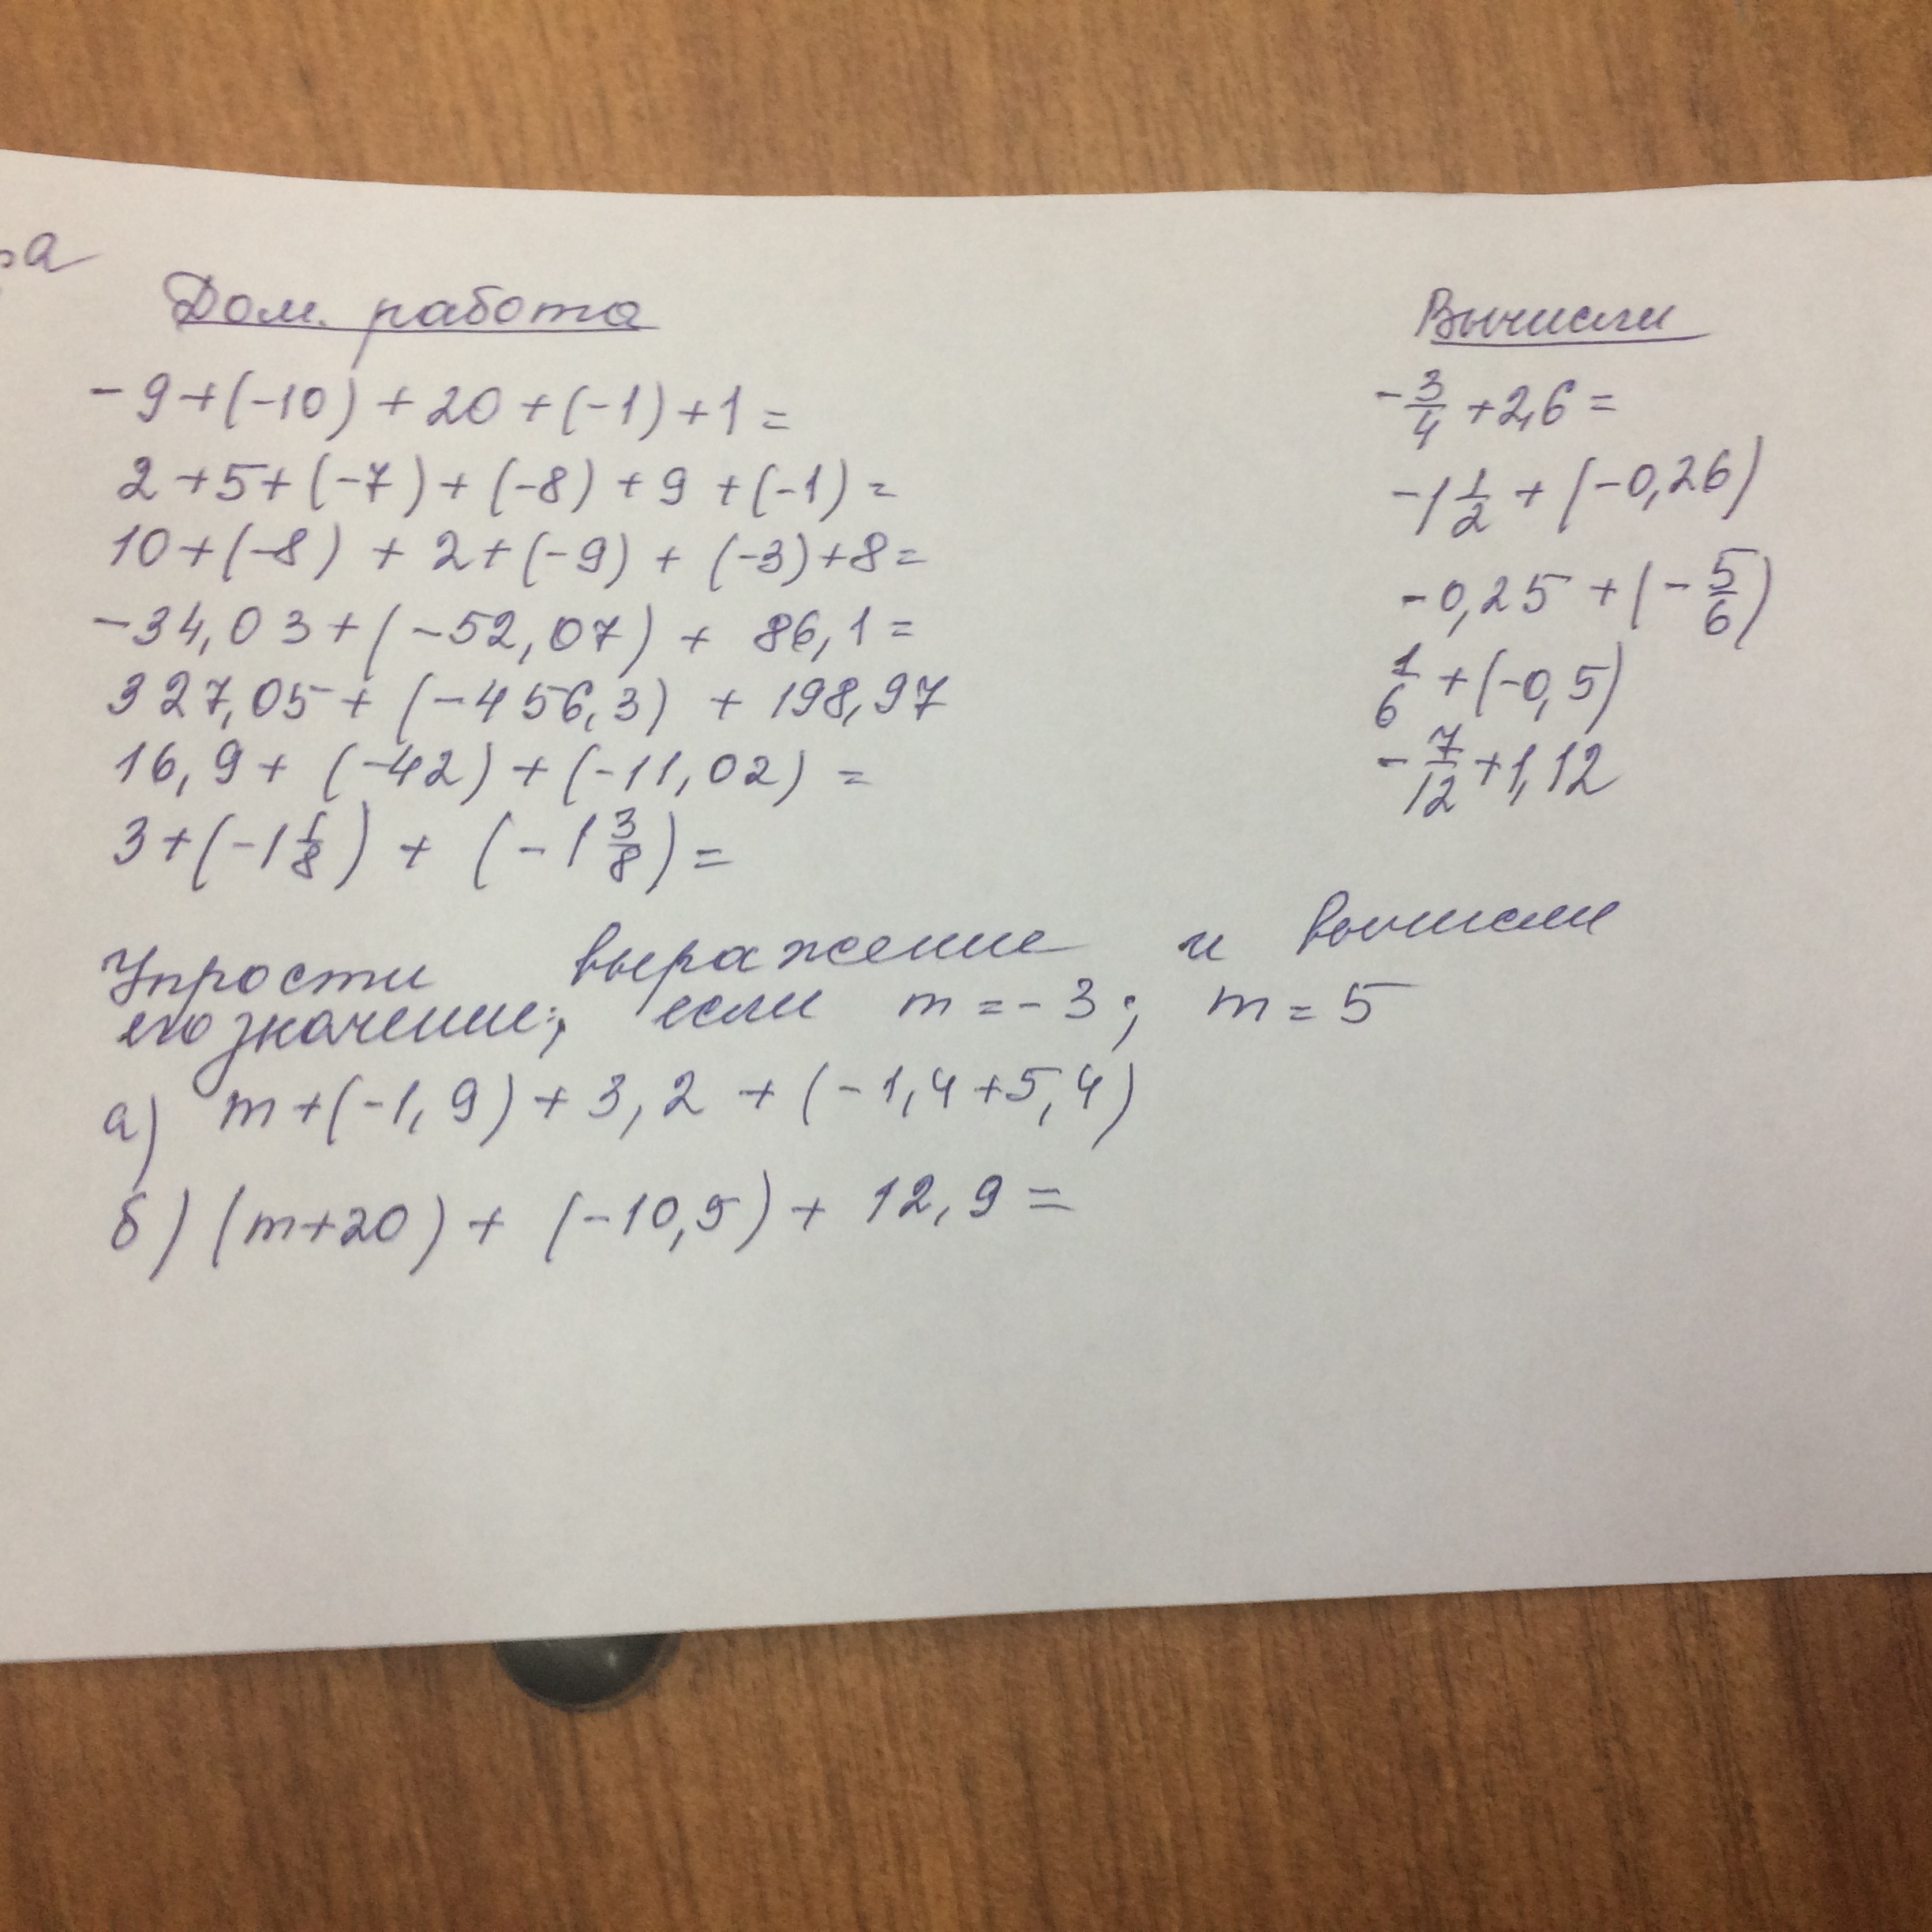 Дом. работа
-9+(-10)+20+(-1)+1=
2+5+(-7)+(-8)+9+(-1)=
10+(-8)+2+(-9)+(-3)+8=
-34,03+(-52,07)+86,1=
327,05+(-456,3)+198,97
16,9+(-42)+(-11,02)=
3+(-1 1/8)+(-1 3/8)=
Вычисли
-3/4+2,6=
-1 1/2+(-0,26)
-0,25+(-5/6)
1/6+(-0,5)
-7/12+1,12
Упрости выражение и вычисли
его значение;, если m=-3; m=5
а) m+(-1,9)+3,2+(-1,4+5,4)
б) (m+20)+(-10,5)+12,9=